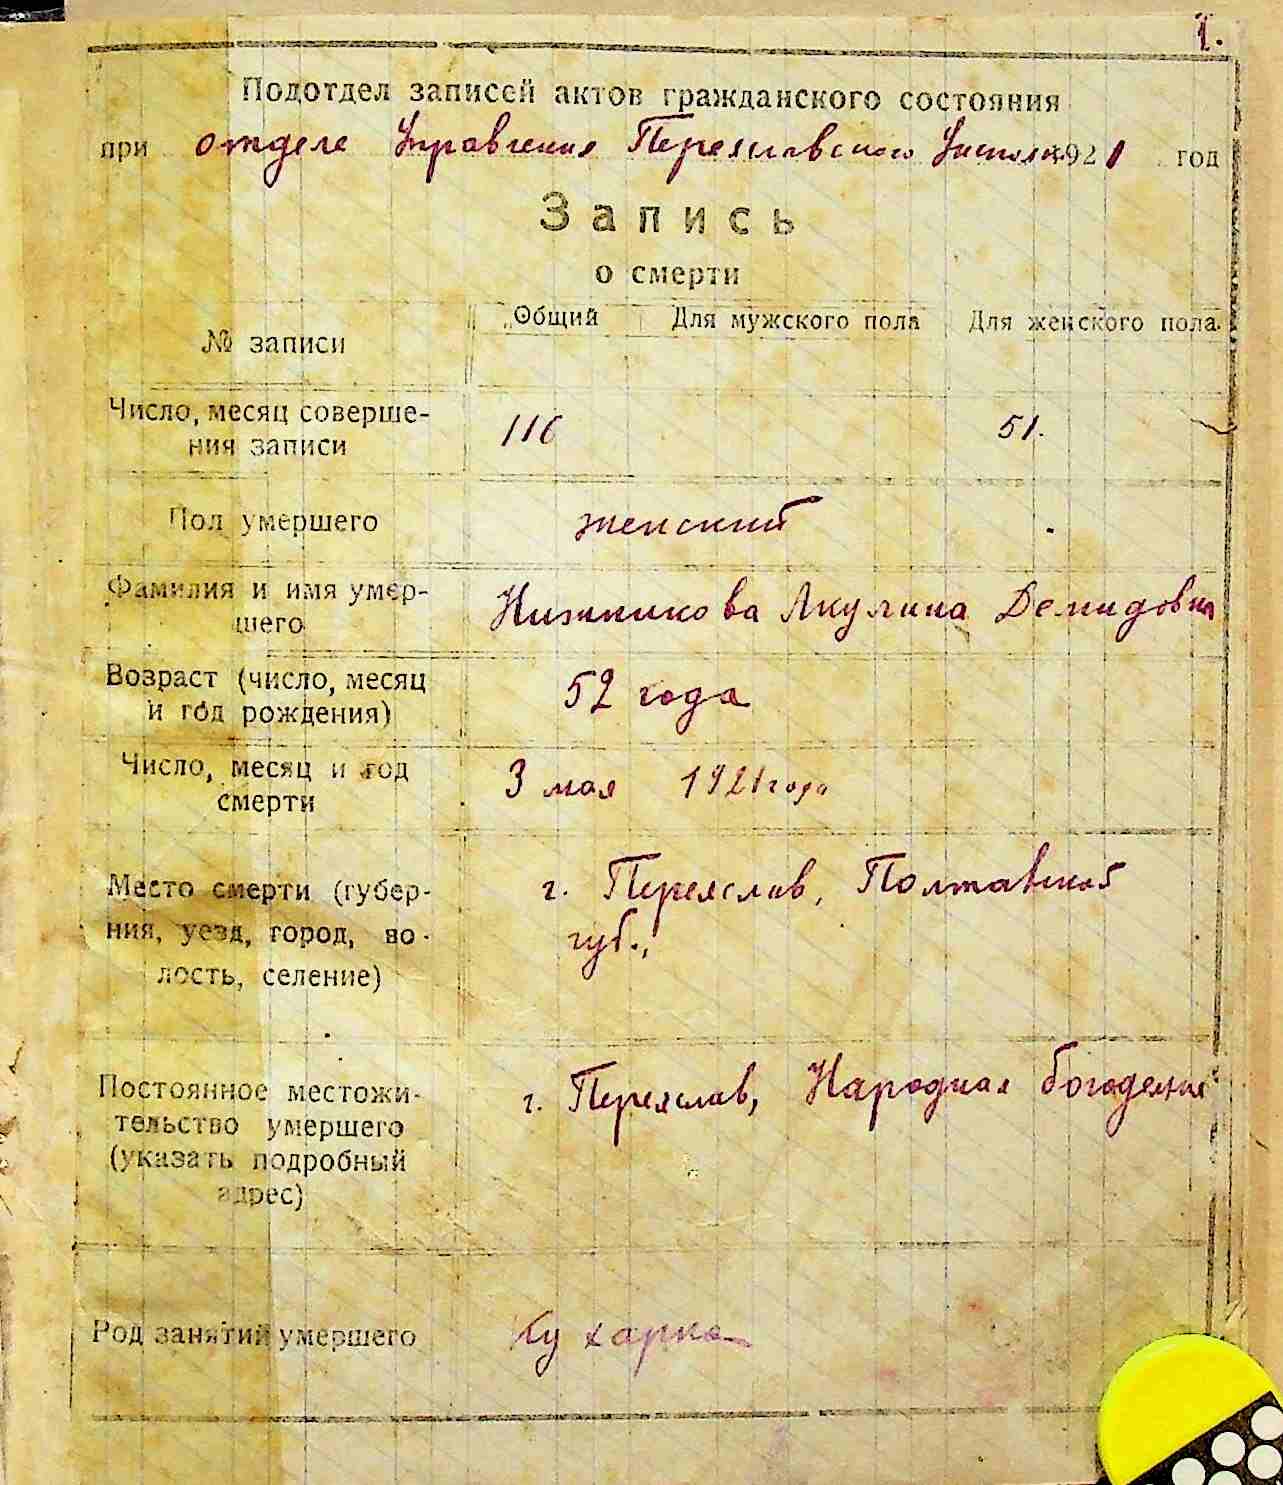 1.
Подотдел записей актов гражданского состояния
при отделе Управления Переяславского 1921 год
Запись
о смерти
№ записи
Общий Для мужского пола Для женского пола
Число, месяц соверше-
ния записи
116 51.
Пол умершего
женский
Фамилия и имя умер-
шего
Нижникова Акулина Демидовна
Возраст (число, месяц
и год рождения)
52 года
Число, месяц и год
смерти
3 мая 1921 года
Место смерти (губер-
ния, уезд, город, во-
лость, селение)
г. Переяслав, Полтавской
губ.,
Постоянное местожи-
тельство умершего
(указать подробный
адрес)
г. Переяслав, Народная богодельня
Род занятий умершего
Кухарка